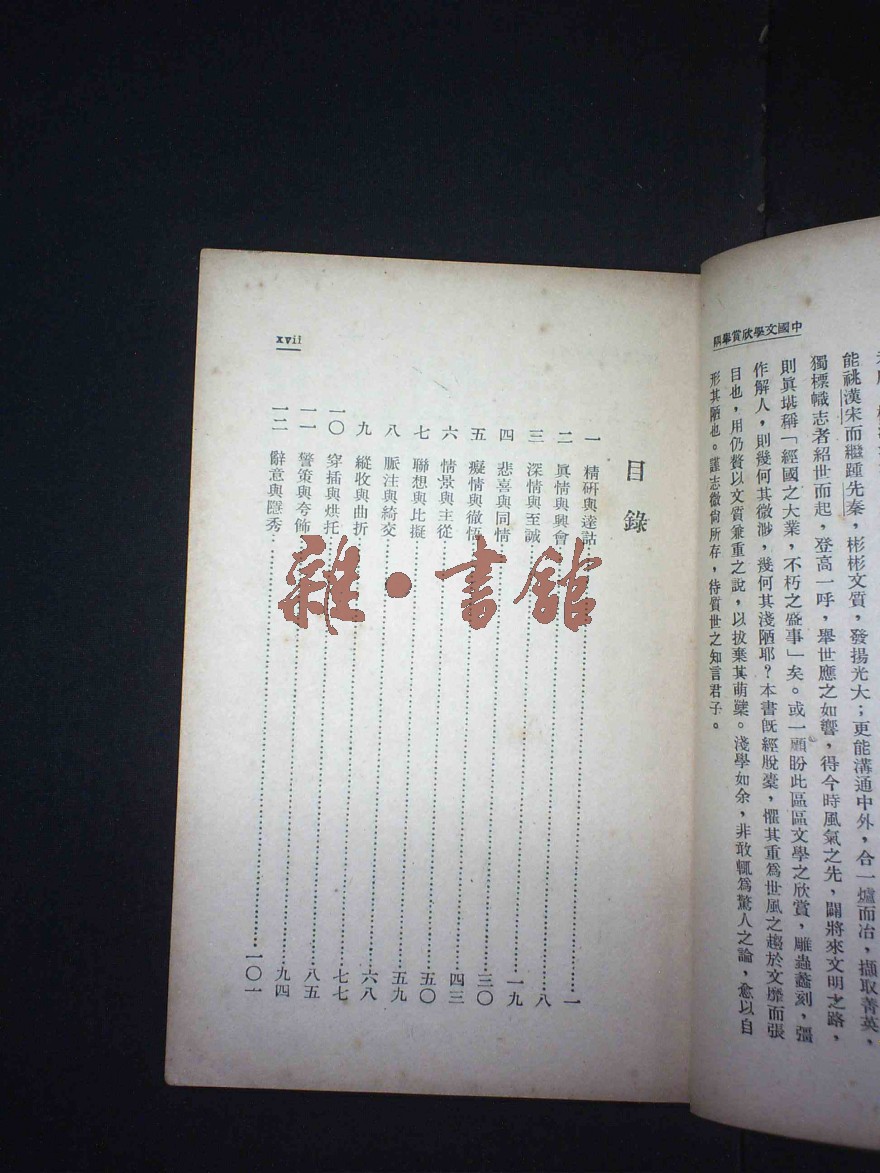 中國文學欣賞舉隅
能祧漢宋而繼踵先秦，彬彬文質，發揚光大；更能溝通中外，合一爐而冶，擷取菁英，
獨標幟志者紹世而起，登高一呼，舉世應之如響，得今時風氣之先，闢將來文明之路，
則眞堪稱「經國之大業，不朽之盛事」矣。或一顧盼此區區文學之欣賞，雕蟲蠡刻，彊
作解人，則幾何其微渺，幾何其淺陋耶？本書旣經脫橐，懼其重爲世風之趨於文靡而張
目也，用仍贅以文質兼重之說，以拔棄其萌櫱。淺學如余，非敢輒爲驚人之論，愈以自
形其陋也。謹志微尙所存，待質世之知言君子。
目錄
一 精硏與達詁……一
二 眞情與興會……八
三 深情與至誠……一九
四 悲喜與同情……三〇
五 癡情與徹悟……四三
六 情景與主從……五〇
七 聯想與比擬……五九
八 脈注與綺交……六八
九 縱收與曲折……七七
一〇 穿插與烘托……八五
一一 警策與夸飾……九四
一二 辭意與隱秀……一〇一
xvii
雜·書館